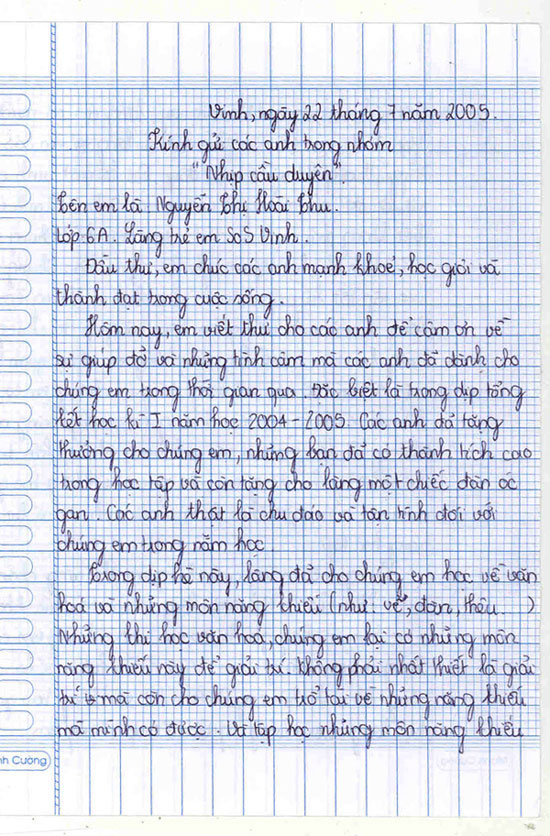 Vinh, ngày 22 tháng 7 năm 2005.
Kính gửi các anh trong nhóm
"Nhịp cầu duyên".
Tên em là: Nguyễn Thị Hoài Thu.
Lớp 6A. Làng trẻ em SOS Vinh.
Đầu thư, em chúc các anh mạnh khoẻ, học giỏi và
thành đạt trong cuộc sống.
Hôm nay, em viết thư cho các anh để cảm ơn về
sự giúp đỡ và những tình cảm mà các anh đã dành cho
chúng em trong thời gian qua. Đặc biệt là trong dịp tổng
kết học kì I năm học 2004-2005. Các anh đã tặng
thưởng cho chúng em, những bạn đã có thành tích cao
trong học tập và còn tặng cho làng một chiếc đàn óc
gan. Các anh thật là chu đáo và tận tình đối với
chúng em trong năm học.
Trong dịp hè này, làng đã cho chúng em học về văn
hoá và những môn năng khiếu (như: vẽ, đàn, thêu. )
Những khi học văn hoá, chúng em lại có những môn
năng khiếu này để giải trí. Không phải nhất thiết là giải
trí mà còn cho chúng em trổ tài về những năng khiếu
mà mình có được. Và tập học những môn năng khiếu
nh Cường